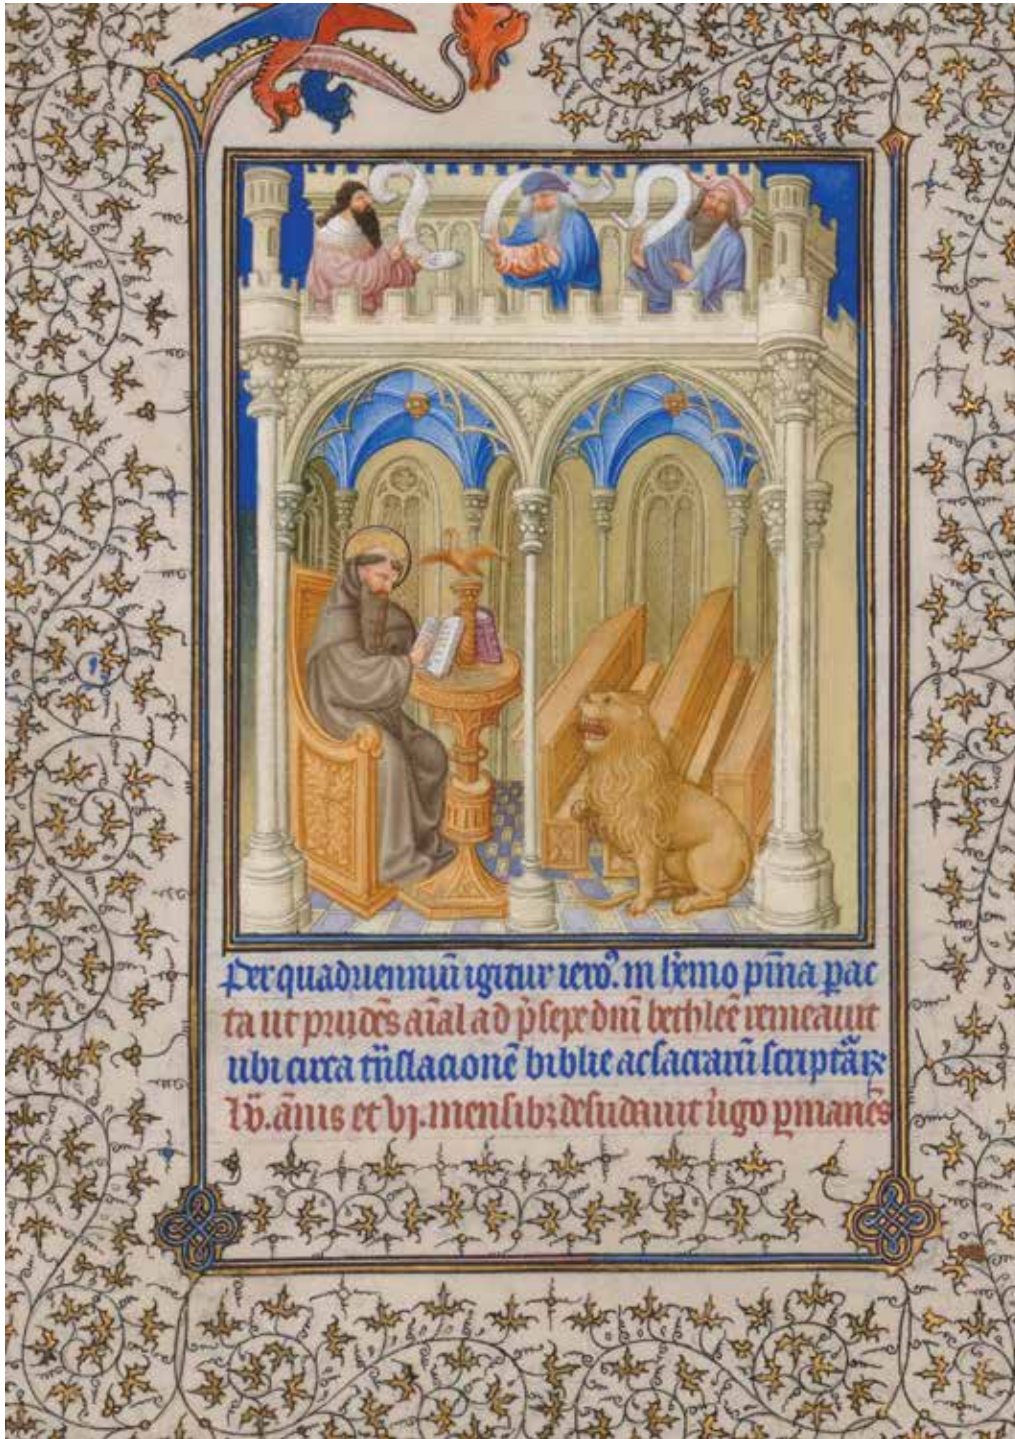 Per quadrienniū igitur iero᷒. in hēmo pīna pac
ta ut prudēs aīal ad p̄sepe dnī bethleē remeauit
ubi circa trāslacionē biblie ac sacrarū scriptūrarꝝ
lv. ānis et vj. mensibꝫ desudauit uˀgo ꝑmanēs